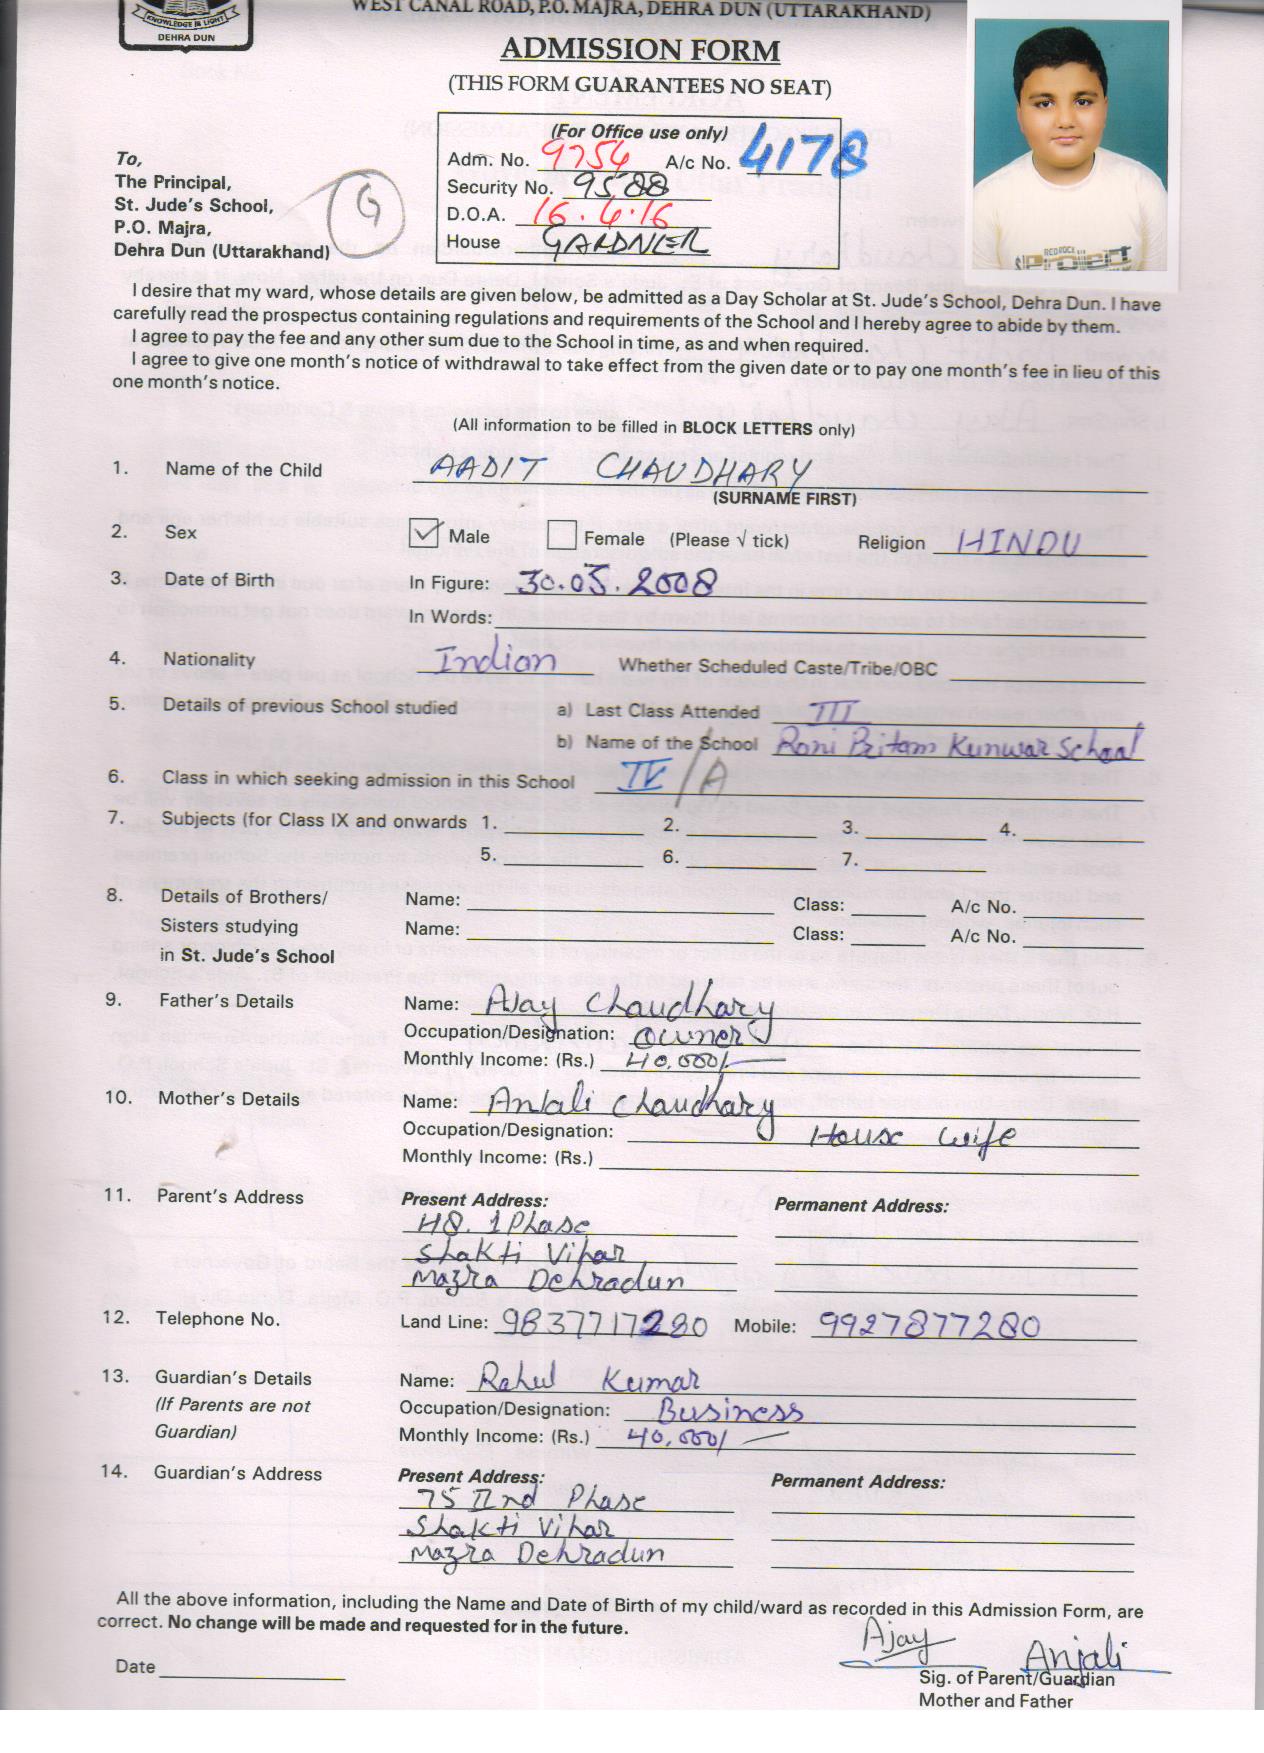 KNOWLEDGE IS LIGHT
DEHRA DUN
WEST CANAL ROAD, P.O. MAJRA, DEHRA DUN (UTTARAKHAND)
ADMISSION FORM
(THIS FORM GUARANTEES NO SEAT)
(For Office use only)
Adm. No. 9754 A/c No. 4178
Security No. 9588
D.O.A. 16.4.16
House GARDNER
To,
The Principal,
St. Jude's School,
P.O. Majra,
Dehra Dun (Uttarakhand)
G
REDROCK
I desire that my ward, whose details are given below, be admitted as a Day Scholar at St. Jude's School, Dehra Dun. I have
carefully read the prospectus containing regulations and requirements of the School and I hereby agree to abide by them.
I agree to pay the fee and any other sum due to the School in time, as and when required.
I agree to give one month's notice of withdrawal to take effect from the given date or to pay one month's fee in lieu of this
one month's notice.
(All information to be filled in BLOCK LETTERS only)
1. Name of the Child AADIT CHAUDHARY
(SURNAME FIRST)
2. Sex ☑ Male ☐ Female (Please √ tick) Religion HINDU
3. Date of Birth In Figure: 30.05.2008
In Words:
4. Nationality Indian Whether Scheduled Caste/Tribe/OBC
5. Details of previous School studied a) Last Class Attended III
b) Name of the School Rani Pritam Kunwar School
6. Class in which seeking admission in this School IV/A
7. Subjects (for Class IX and onwards 1. 2. 3. 4.
5. 6. 7.
8. Details of Brothers/ Name: Class: A/c No.
Sisters studying Name: Class: A/c No.
in St. Jude's School
9. Father's Details Name: AJay Chaudhary
Occupation/Designation: Owner
Monthly Income: (Rs.) 40,000/-
10. Mother's Details Name: AnJali Chaudhary
Occupation/Designation: House wife
Monthly Income: (Rs.)
11. Parent's Address Present Address: Permanent Address:
H8. 1 Phase
Shakti Vihar
Mazra Dehradun
12. Telephone No. Land Line: 9837717280 Mobile: 9927877280
13. Guardian's Details Name: Rahul Kumar
(If Parents are not Occupation/Designation: Business
Guardian) Monthly Income: (Rs.) 40,000/-
14. Guardian's Address Present Address: Permanent Address:
75 IInd Phase
Shakti Vihar
Mazra Dehradun
All the above information, including the Name and Date of Birth of my child/ward as recorded in this Admission Form, are
correct. No change will be made and requested for in the future.
Ajay Anjali
Date
Sig. of Parent/Guardian
Mother and Father